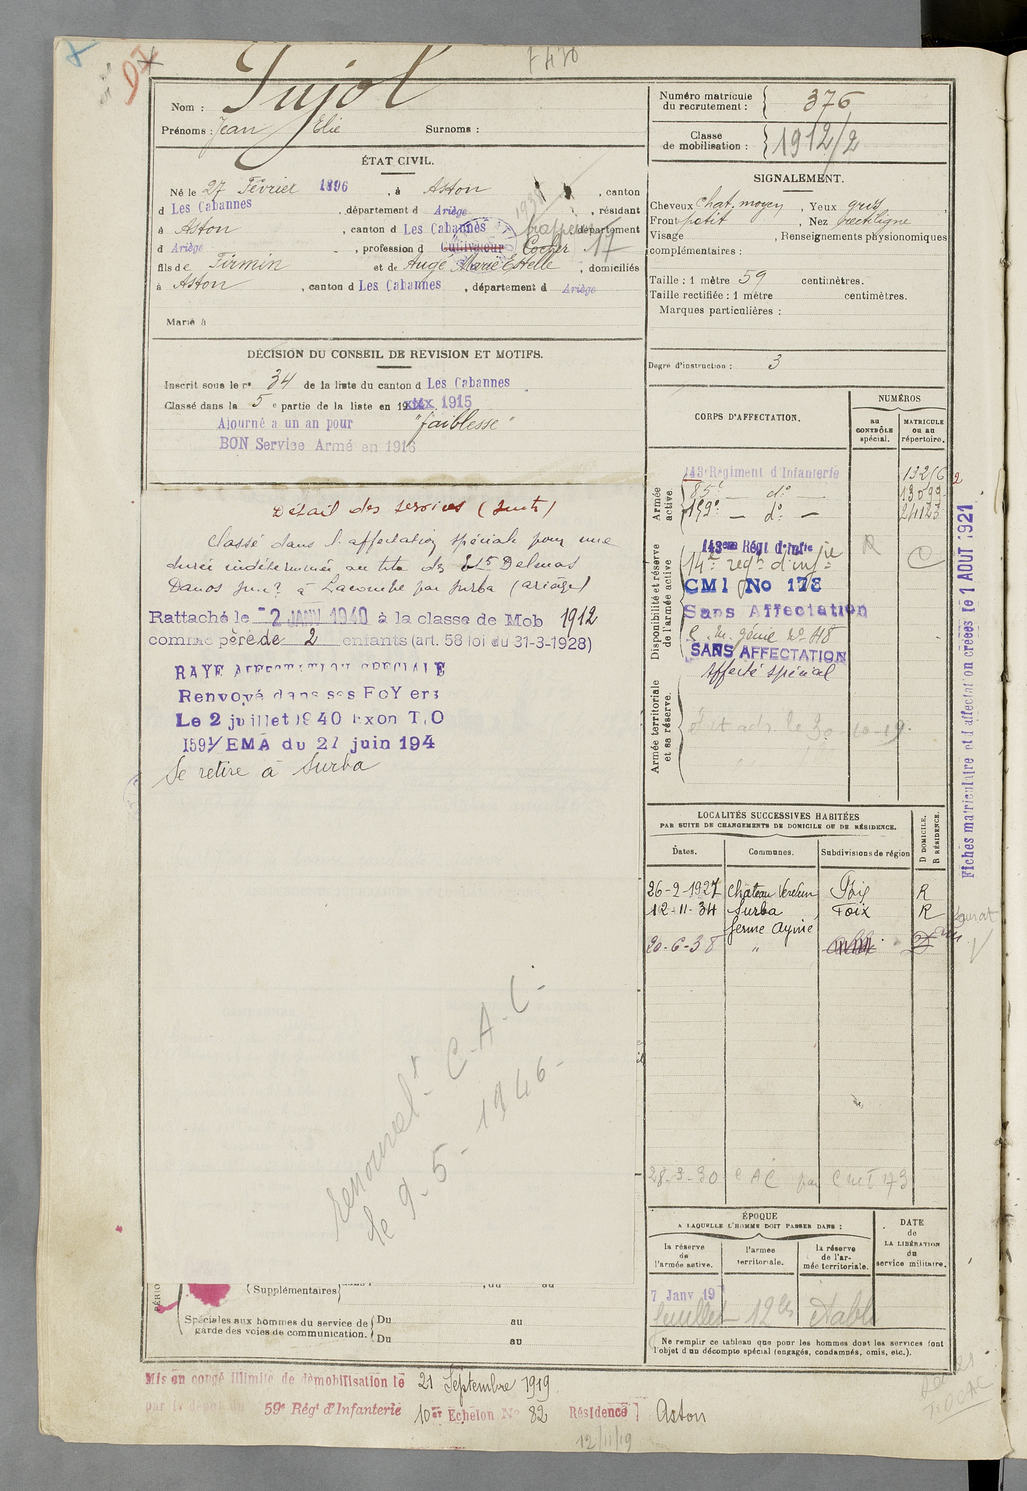 7470
Nom : Pujol
Prénoms : Jean Elie Surnoms :
Numéro matricule du recrutement : 376
Classe de mobilisation : 1912/2
ÉTAT CIVIL.
Né le 27 Février 1896, à Aston, canton
d Les Cabannes, département d Ariège, résidant
à Aston, canton d Les Cabannes, département
d Ariège, profession d Cultivateur Cocher 17
fils de Firmin et de Augé Marie Estelle, domiciliés
à Aston, canton d Les Cabannes, département d Ariège
Marié à
SIGNALEMENT.
Cheveux chat. moyen, Yeux gris
Front petit, Nez rectiligne
Visage , Renseignements physionomiques
complémentaires :
Taille : 1 mètre 59 centimètres.
Taille rectifiée : 1 mètre centimètres.
Marques particulières :
Degré d'instruction : 3
DÉCISION DU CONSEIL DE REVISION ET MOTIFS.
Inscrit sous le n° 34 de la liste du canton d Les Cabannes
Classé dans la 5e partie de la liste en 19 1915
Ajourné a un an pour "faiblesse"
BON Service Armé en 1916
Détail des services (suite)
Classé dans l'affectation spéciale pour une
durée indéterminée au titre des Ets Delmas
à Lacombe par Surba (Ariège)
Rattaché le 2 JANV 1940 à la classe de Mob 1912
comme père de 2 enfants (art. 58 loi du 31-3-1928)
RAYE AFFECTATION SPECIALE
Renvoyé dans ses FoYers
Le 2 juillet 1940 Exon T.O
1591/EMA du 27 juin 194
Se retire à Surba
renouvelt C.A.C.
le 9-5-1946-
CORPS D'AFFECTATION.
NUMÉROS
au CONTRÔLE spécial.
MATRICULE ou au répertoire.
Armée active
143e Régiment d'Infanterie 13216
85e — d° — 13099
142e — d° — 24123
Disponibilité et réserve de l'armée active
143eme Régt d'Infie
14e regt d'infie
CMI No 178
Sans Affectation
SANS AFFECTATION
Affecté spécial
Armée territoriale et sa réserve.
Fiches matriculaire et d'affectation créées le 1 AOUT 1921
LOCALITÉS SUCCESSIVES HABITÉES
PAR SUITE DE CHANGEMENTS DE DOMICILE OU DE RÉSIDENCE.
Dates. Communes. Subdivisions de région D DOMICILE. R RÉSIDENCE.
26-2-1927 Chateau Verdun Foix R
12-11-34 Surba Foix R
20-6-38 "
28-3-30 CAC
ÉPOQUE
A LAQUELLE L'HOMME DOIT PASSER DANS :
DATE de LA LIBÉRATION du service militaire.
la réserve de l'armée active.
l'armée territoriale.
la réserve de l'armée territoriale.
7 Janv 19
(Supplémentaires) , du au
Spéciales aux hommes du service de garde des voies de communication.
Du au
Du au
Ne remplir ce tableau que pour les hommes dont les services font
l'objet d'un décompte spécial (engagés, condamnés, omis, etc.).
Mis en congé illimité de démobilisation le 21 Septembre 1919
par le dépôt du 59e Régt d'Infanterie 10er Echelon No 82 Résidence Aston
12/11/19